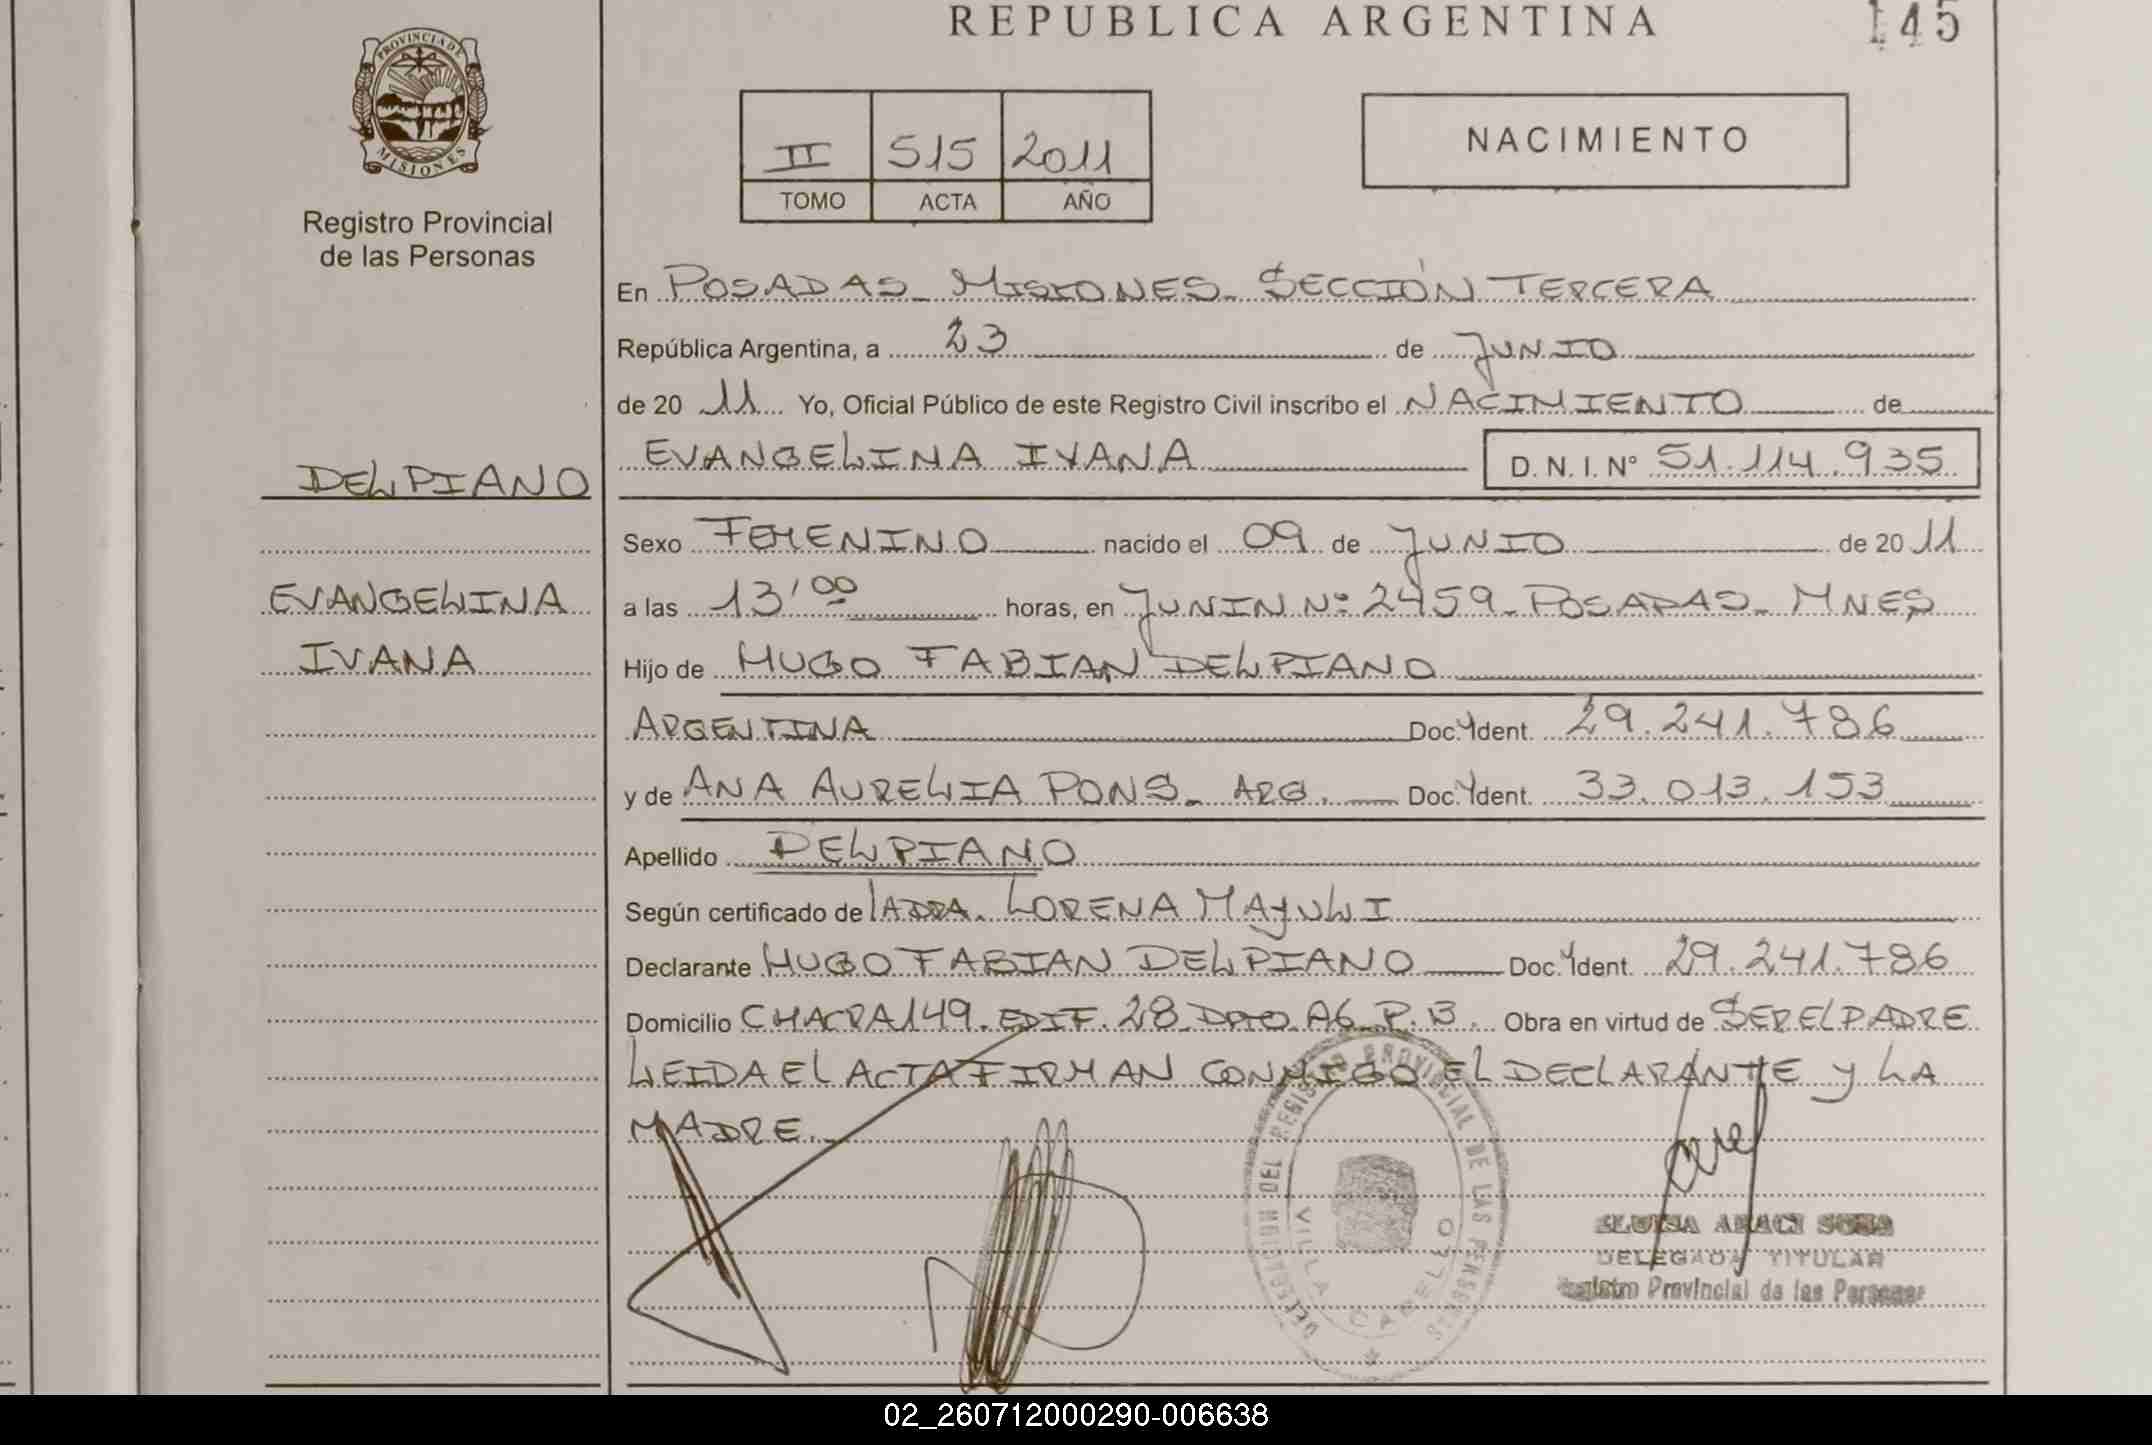 REPUBLICA ARGENTINA
145
PROVINCIA DE
MISIONES
Registro Provincial
de las Personas
II 515 2011
TOMO ACTA AÑO
NACIMIENTO
En POSADAS - MISIONES - SECCIÓN TERCERA
República Argentina, a 23 de JUNIO
de 20 11 Yo, Oficial Público de este Registro Civil inscribo el NACIMIENTO de
EVANGELINA IVANA D.N.I. N° 51.114.935
DELPIANO
EVANGELINA
IVANA
Sexo FEMENINO nacido el 09 de JUNIO de 20 11
a las 13'00 horas, en JUNIN Nº 2459 - POSADAS - MNES
Hijo de HUGO FABIAN DELPIANO
ARGENTINA Doc. Ident. 29.241.786
y de ANA AURELIA PONS - ARG. Doc. Ident. 33.013.153
Apellido DELPIANO
Según certificado de LA DRA. LORENA MAYULI
Declarante HUGO FABIAN DELPIANO Doc. Ident. 29.241.786
Domicilio CHACRA 149. EDIF. 28 DPTO. A6. P. B. Obra en virtud de SER EL PADRE
LEIDA EL ACTA FIRMAN CONMIGO EL DECLARANTE Y LA
MADRE.
DELEGACION DEL REGISTRO PROVINCIAL DE LAS PERSONAS
VILLA CABELLO
DELEGADA TITULAR
Registro Provincial de las Personas
02_260712000290-006638